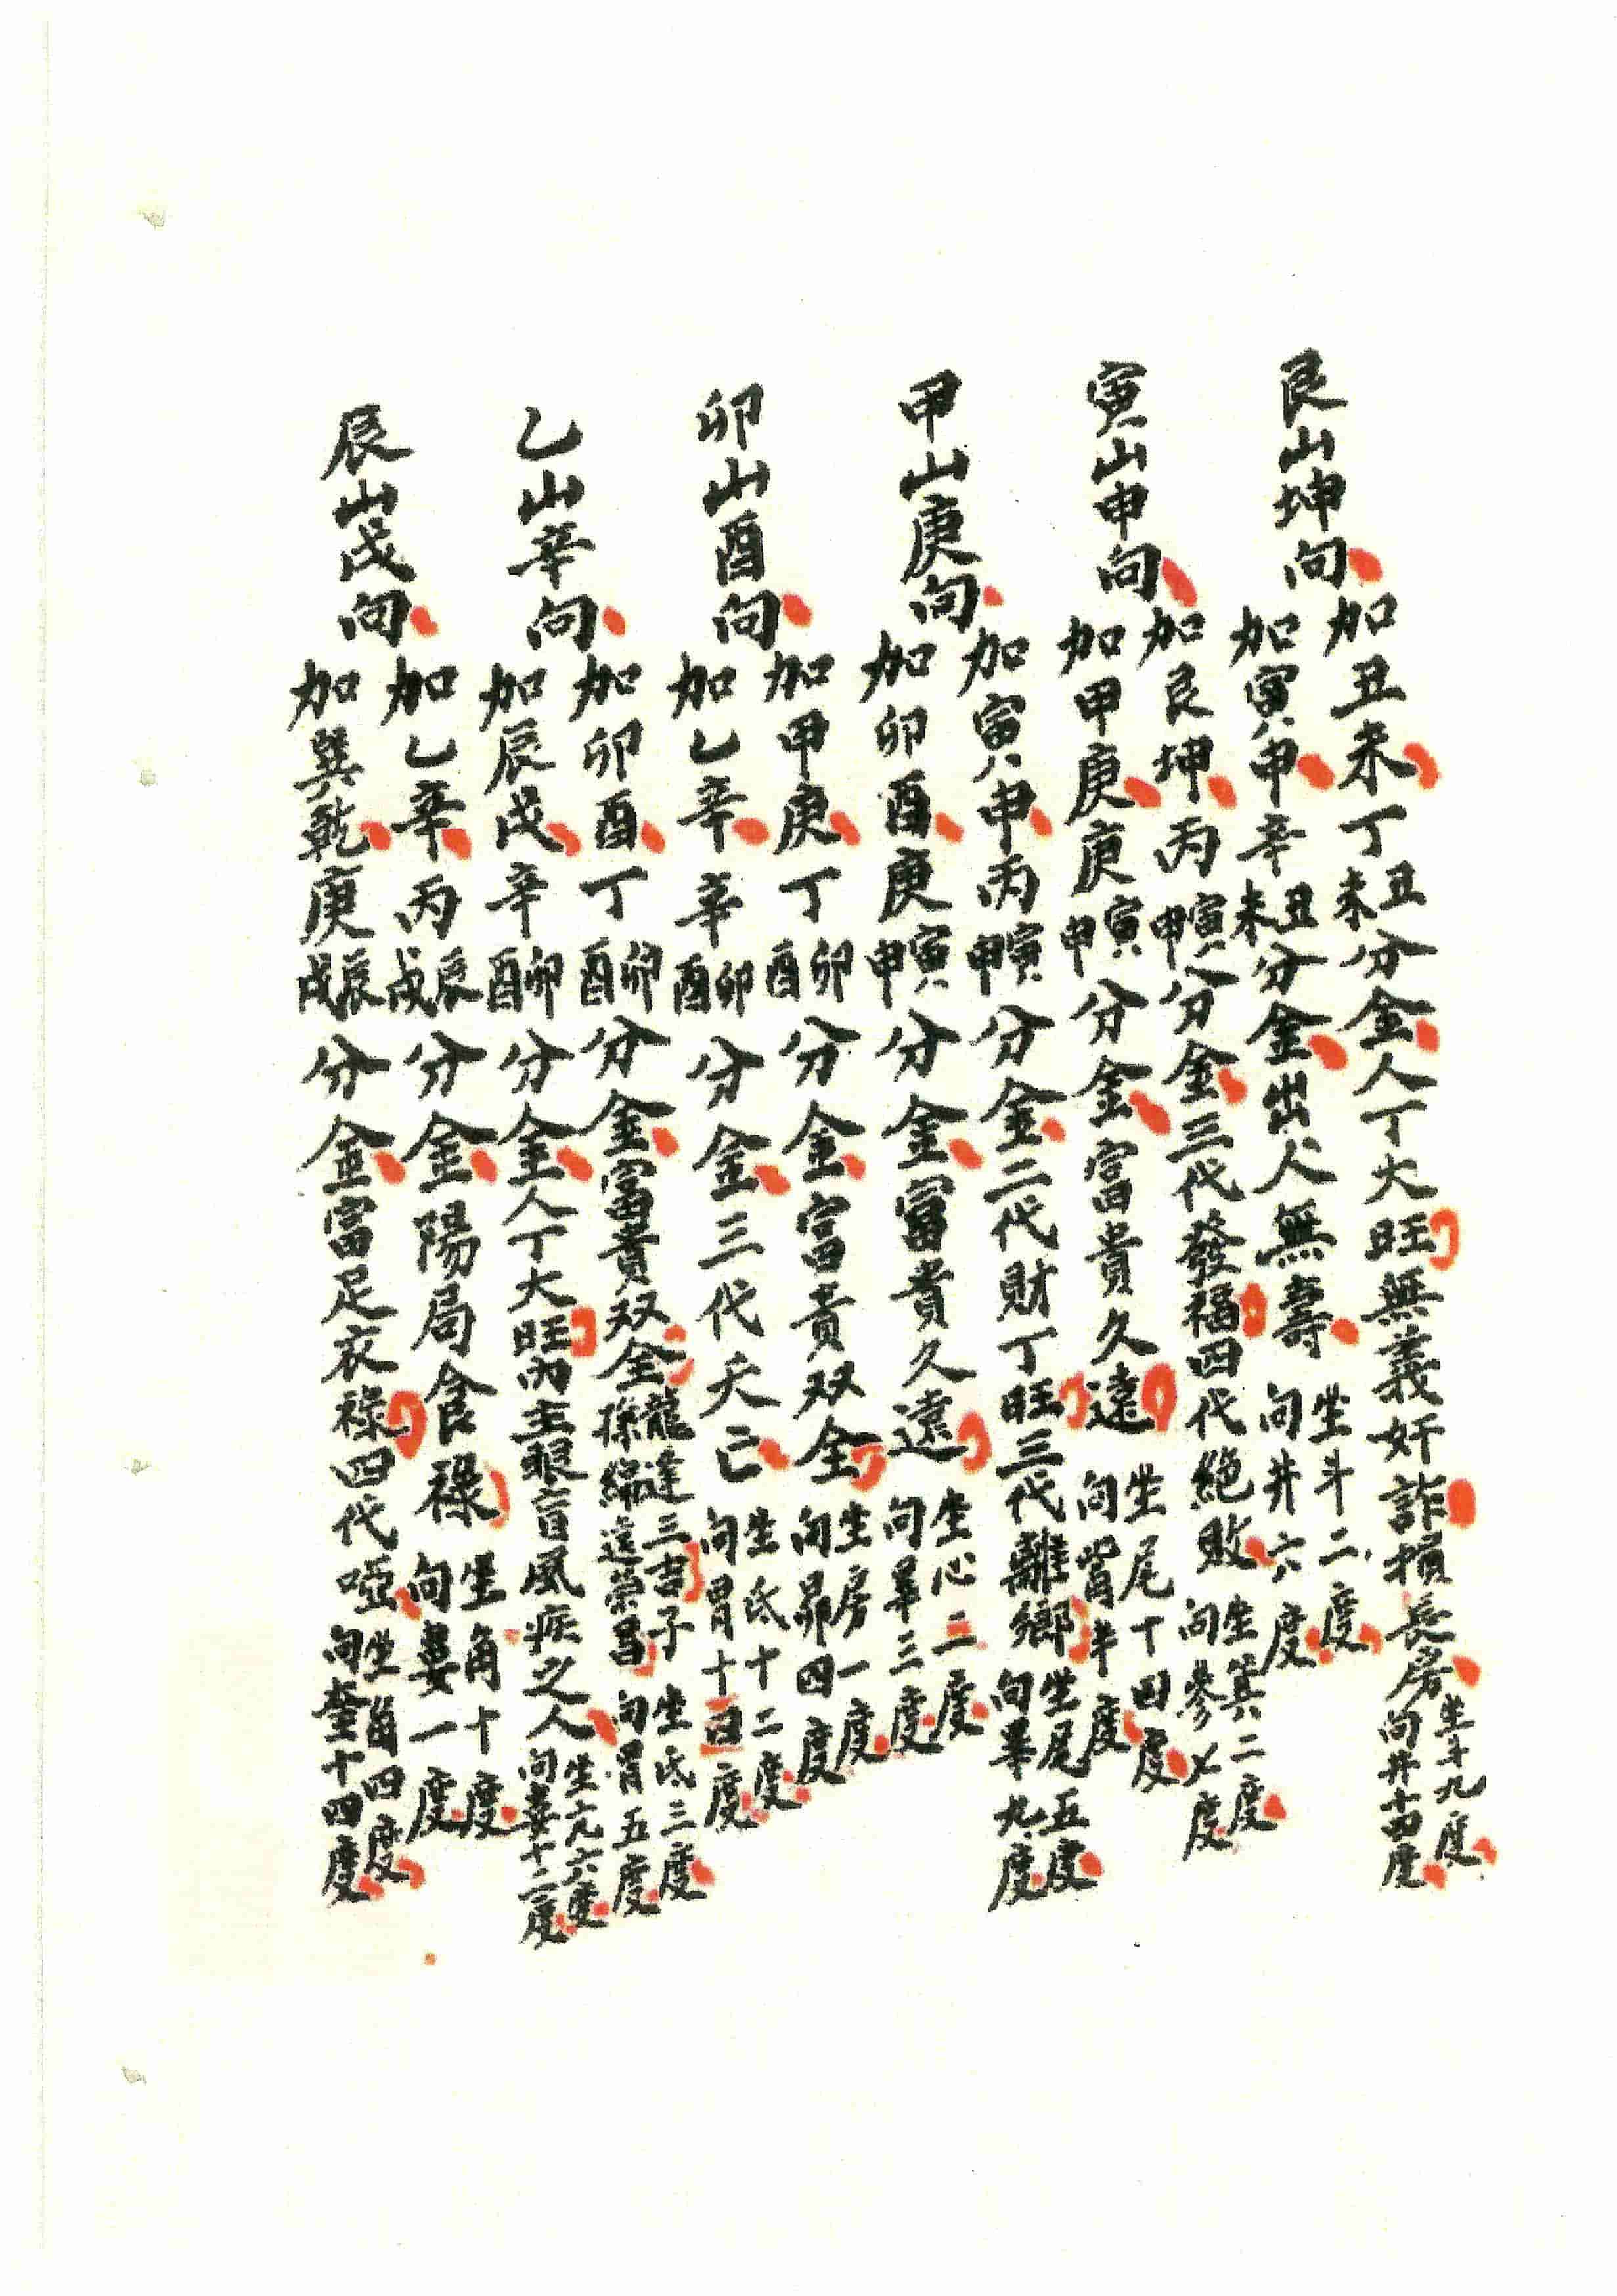 艮山坤向
加丑未丁丑未分金人丁大旺無義奸詐損長房坐斗九度向井十四度
加寅申辛丑未分金出人無壽坐斗二度向井六度
寅山申向
加艮坤丙寅申分金三代發福四代絕敗坐箕二度向參七度
加甲庚庚寅申分金富貴久遠坐尾十四度向觜半度
甲山庚向
加寅申丙寅申分金二代財丁旺三代離鄉坐尾五度向畢九度
加卯酉庚寅申分金富貴久遠坐心二度向畢三度
卯山酉向
加甲庚丁卯酉分金富貴双全坐房一度向昴四度
加乙辛辛卯酉分金三代夭亡坐氐十二度向胃十四度
乙山辛向
加卯酉丁卯酉分金富貴双全龍逢三吉子孫綿遠榮昌坐氐三度向胃五度
加辰戌辛卯酉分金人丁大旺內主眼盲風疾之人坐亢六度向婁十二度
辰山戌向
加乙辛丙辰戌分金陽局食祿坐角十度向婁一度
加巽乾庚辰戌分金富足衣祿四代啞坐角四度向奎十四度